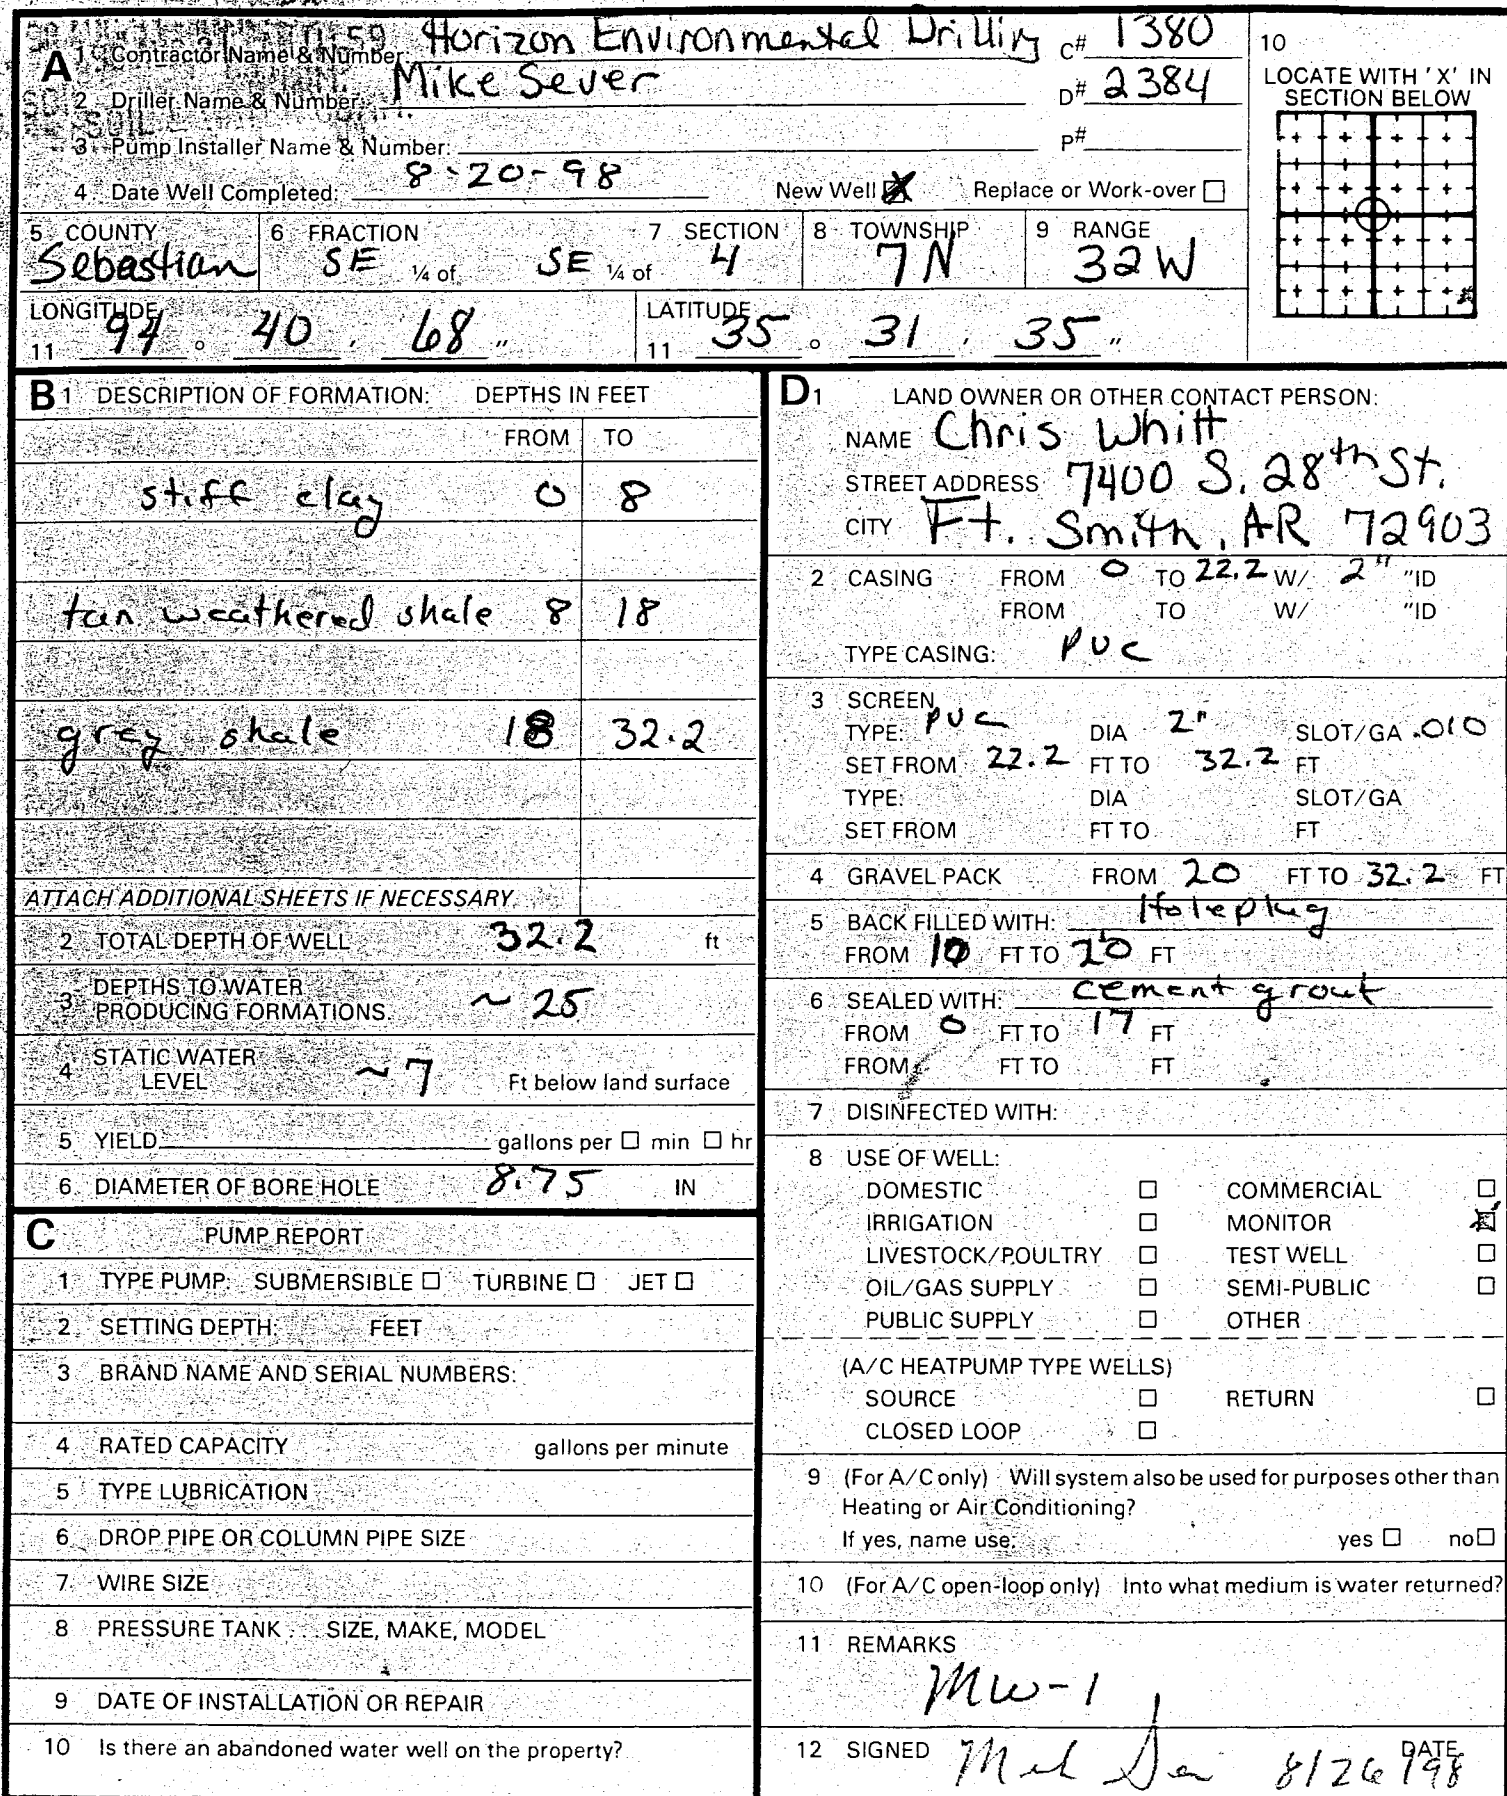 A 1 Contractor Name & Number: Horizon Environmental Drilling C# 1380
2 Driller Name & Number: Mike Sever D# 2384
3 Pump Installer Name & Number: P#
4 Date Well Completed: 8-20-98 New Well Replace or Work-over
5 COUNTY Sebastian 6 FRACTION SE ¼ of SE ¼ of 7 SECTION 4 8 TOWNSHIP 7N 9 RANGE 32W
10 LOCATE WITH 'X' IN SECTION BELOW
11 LONGITUDE 94 ° 40 ' 68 " 11 LATITUDE 35 ° 31 ' 35 "
B 1 DESCRIPTION OF FORMATION: DEPTHS IN FEET
FROM TO
stiff clay 0 8
tan weathered shale 8 18
grey shale 18 32.2
ATTACH ADDITIONAL SHEETS IF NECESSARY.
2 TOTAL DEPTH OF WELL 32.2 ft
3 DEPTHS TO WATER PRODUCING FORMATIONS ~ 25
4 STATIC WATER LEVEL ~7 Ft below land surface
5 YIELD gallons per min hr
6 DIAMETER OF BORE HOLE 8.75 IN
C PUMP REPORT
1 TYPE PUMP: SUBMERSIBLE TURBINE JET
2 SETTING DEPTH: FEET
3 BRAND NAME AND SERIAL NUMBERS:
4 RATED CAPACITY gallons per minute
5 TYPE LUBRICATION
6 DROP PIPE OR COLUMN PIPE SIZE
7 WIRE SIZE
8 PRESSURE TANK SIZE, MAKE, MODEL
9 DATE OF INSTALLATION OR REPAIR
10 Is there an abandoned water well on the property?
D 1 LAND OWNER OR OTHER CONTACT PERSON:
NAME Chris Whitt
STREET ADDRESS 7400 S. 28th St.
CITY Ft. Smith, AR 72903
2 CASING FROM 0 TO 22.2 W/ 2" "ID
FROM TO W/ "ID
TYPE CASING: PVC
3 SCREEN
TYPE: PVC DIA 2" SLOT/GA .010
SET FROM 22.2 FT TO 32.2 FT
TYPE: DIA SLOT/GA
SET FROM FT TO FT
4 GRAVEL PACK FROM 20 FT TO 32.2 FT
5 BACK FILLED WITH: Holeplug
FROM 10 FT TO 20 FT
6 SEALED WITH: cement grout
FROM 0 FT TO 17 FT
FROM FT TO FT
7 DISINFECTED WITH:
8 USE OF WELL:
DOMESTIC COMMERCIAL
IRRIGATION MONITOR
LIVESTOCK/POULTRY TEST WELL
OIL/GAS SUPPLY SEMI-PUBLIC
PUBLIC SUPPLY OTHER
(A/C HEATPUMP TYPE WELLS)
SOURCE RETURN
CLOSED LOOP
9 (For A/C only) Will system also be used for purposes other than
Heating or Air Conditioning?
If yes, name use: yes no
10 (For A/C open-loop only) Into what medium is water returned?
11 REMARKS
MW-1
12 SIGNED DATE 8/26/98